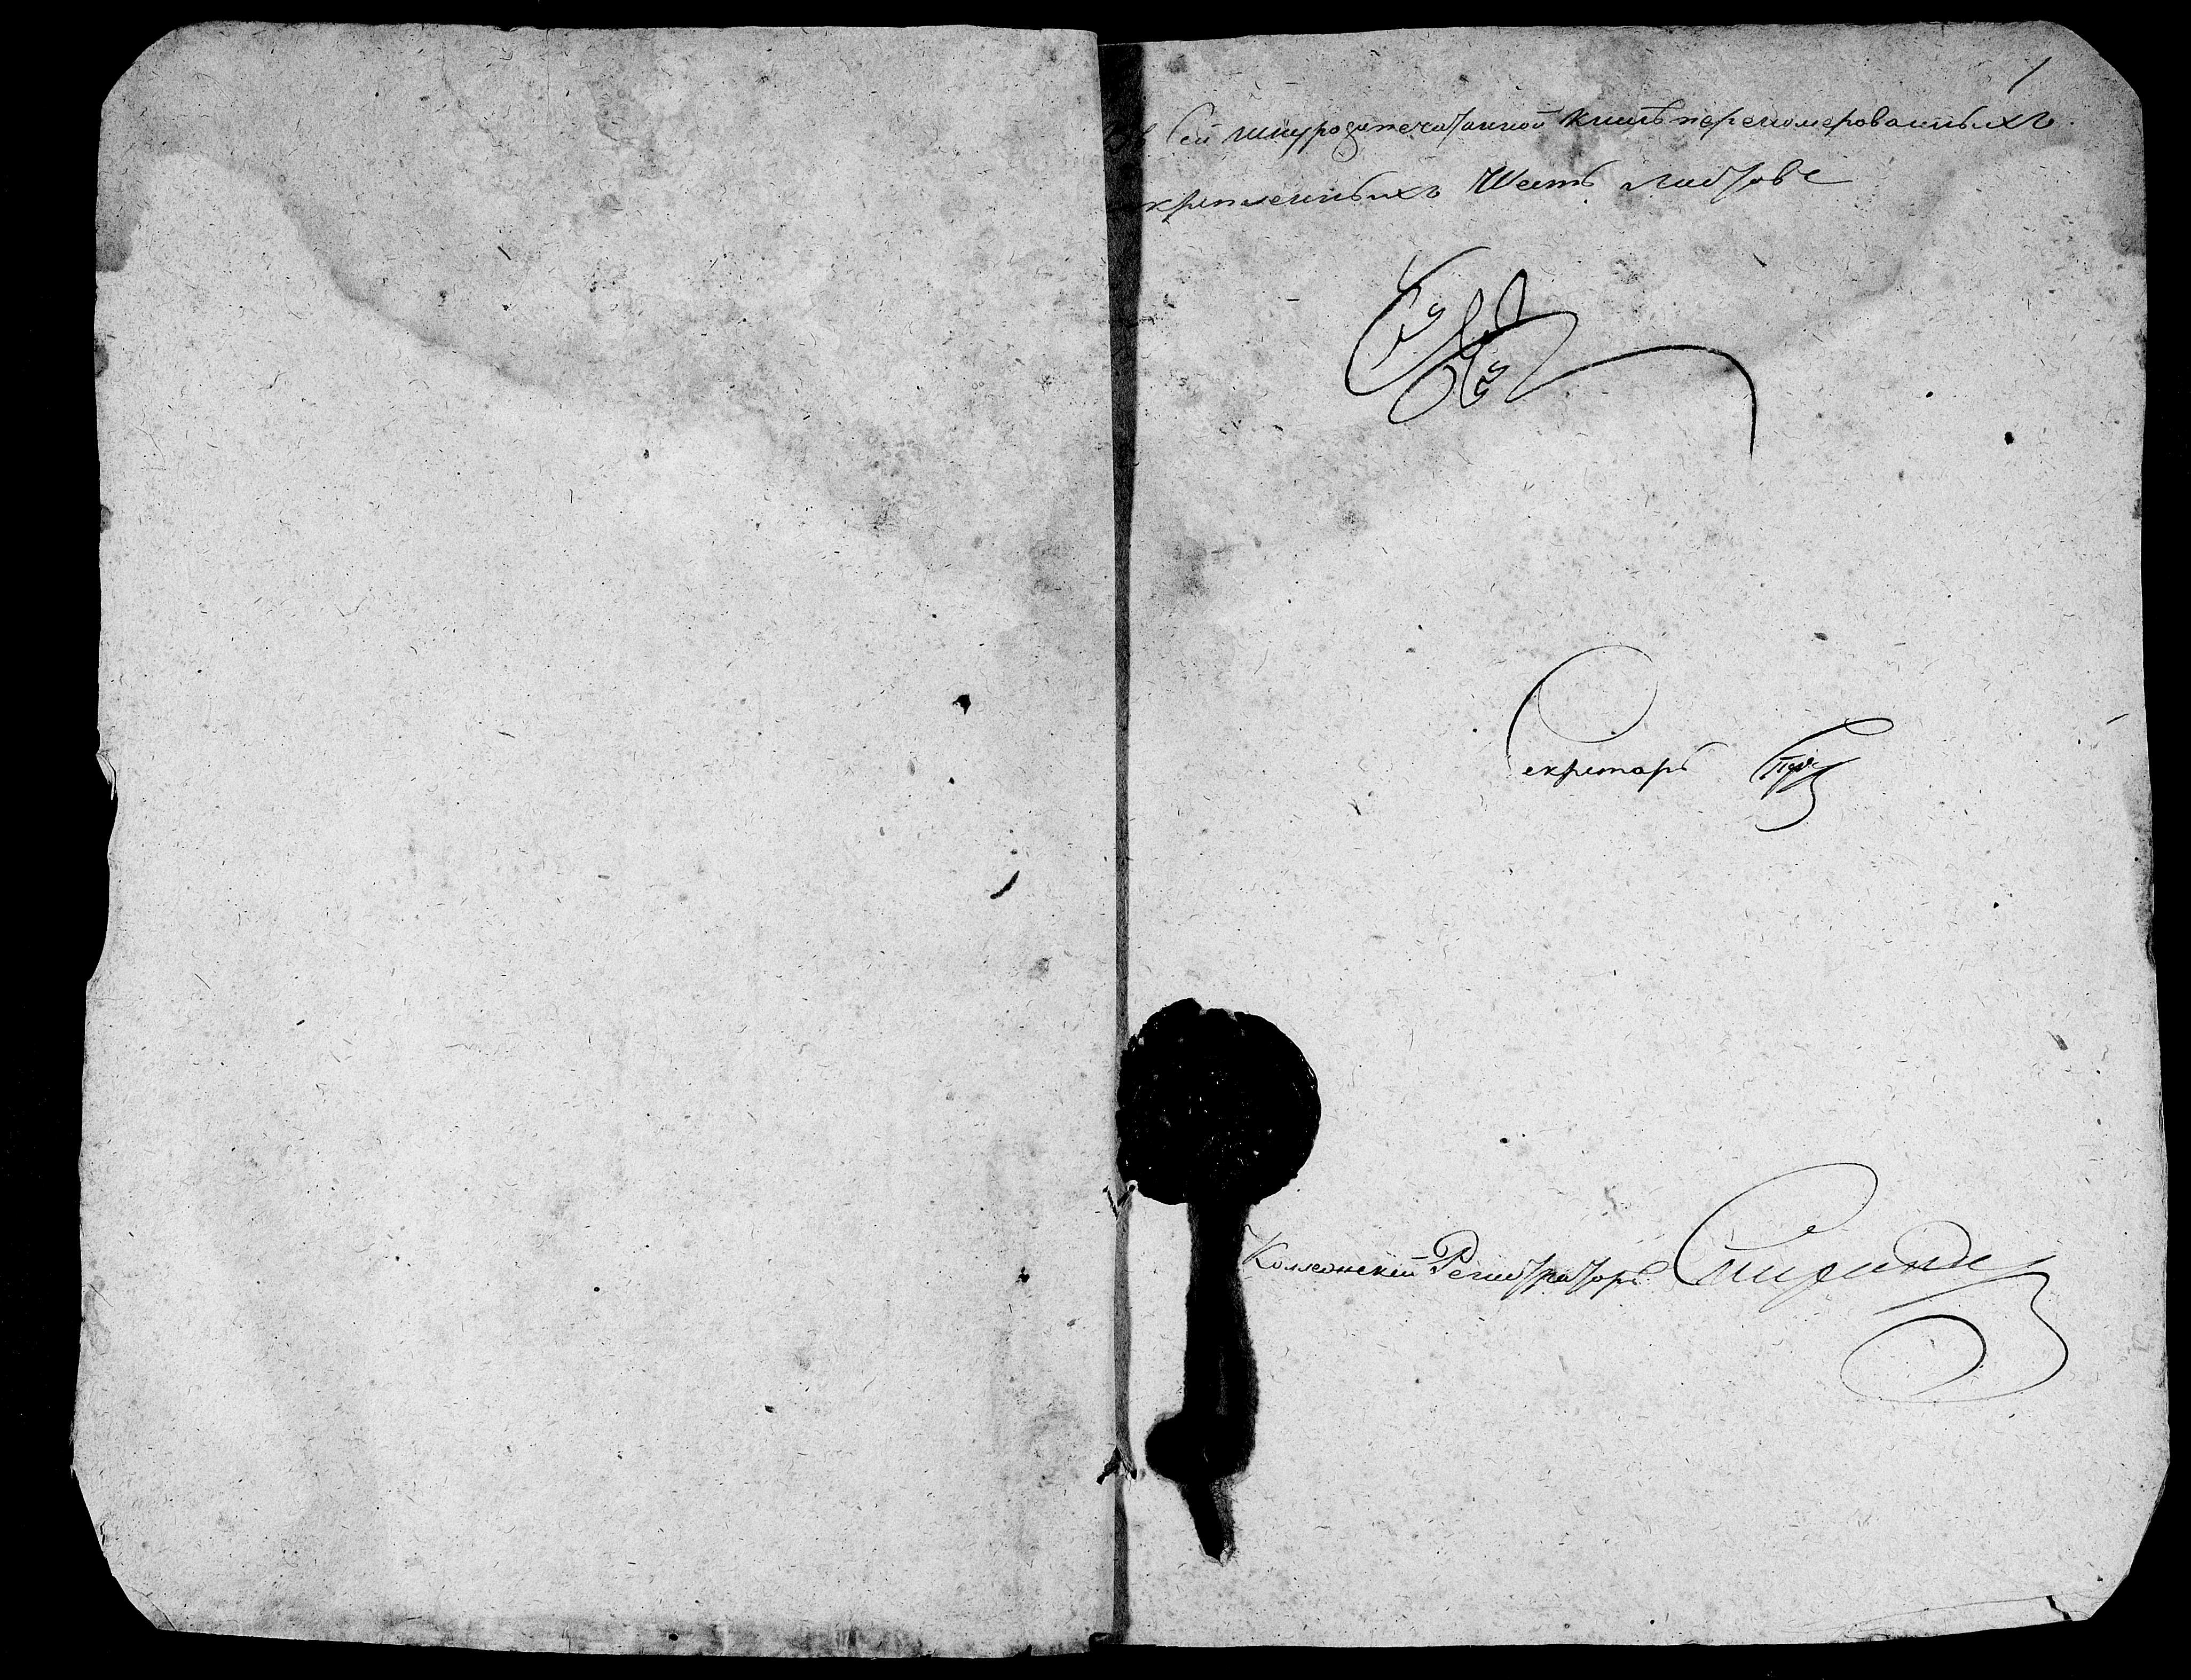 1
Въ сей шнурозапечатанной книгѣ переномерованныхъ
скрепленныхъ Шесть листовъ
Секретарь
Коллежскій Регистраторъ